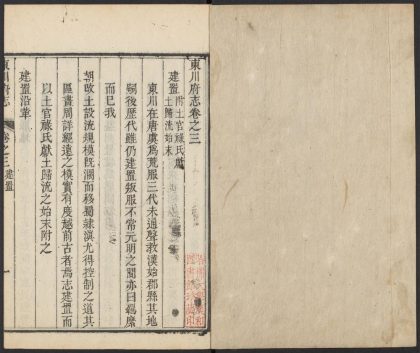 東川府志卷之三
建置 附土官祿氏獻土歸流始末
東川在唐虞爲荒服三代未通聲教漢始郡縣其地
嗣後歷代雖仍建置叛服不常元明之間亦曰羈縻
而已我
朝改土設流規模旣濶而移蜀隸滇尤得控制之道其
區畫周詳經遠之模實有度越前古者焉志建置而
以土官祿氏獻土歸流之始末附之
建置沿革
東川府志
卷之三 建置
一